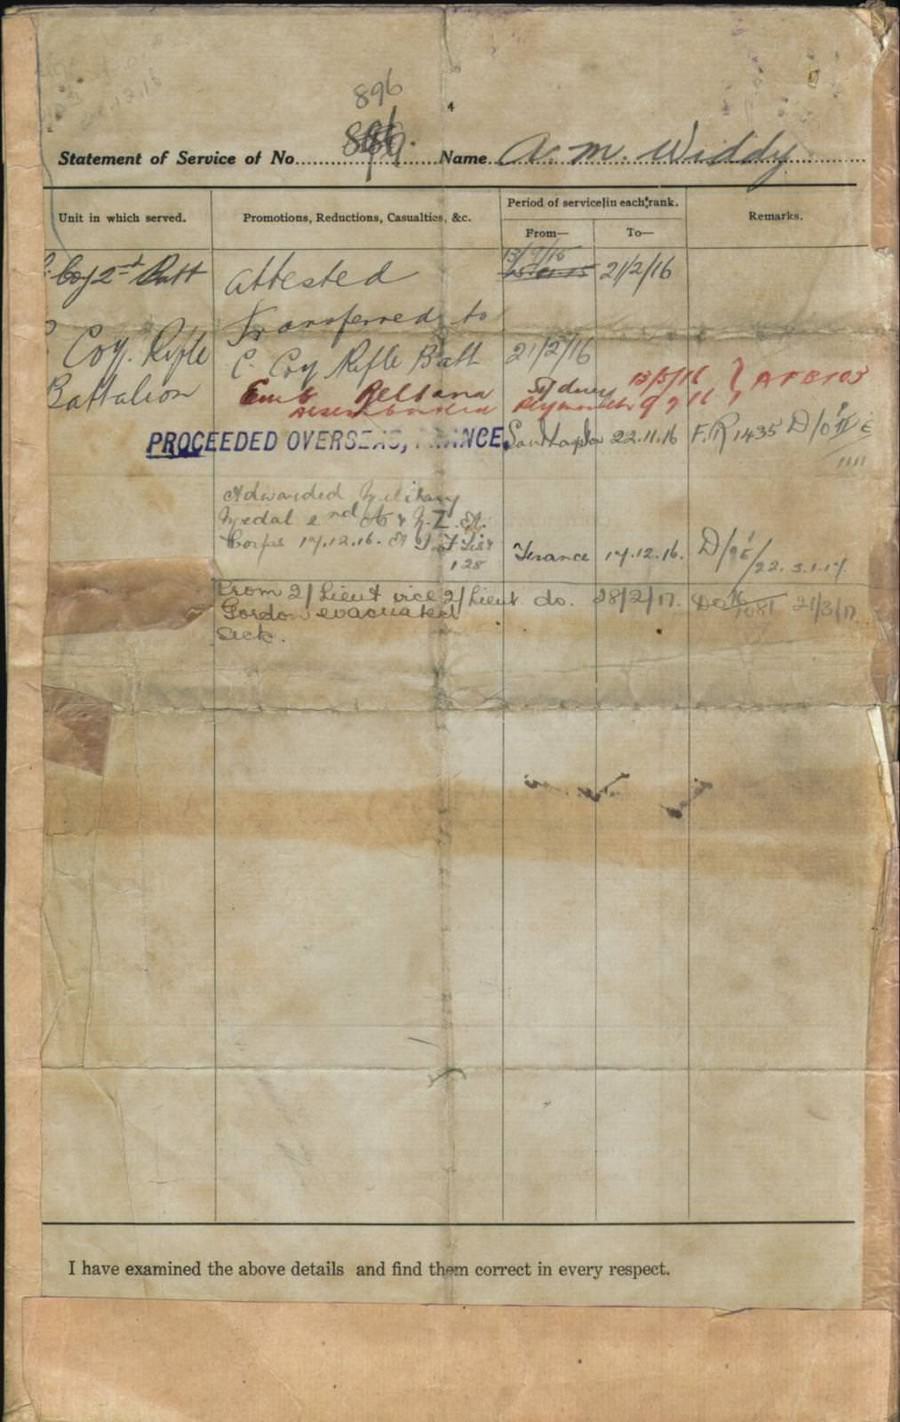 896
4
Statement of Service of No. 896. Name A. M. Widdy
Unit in which served. Promotions, Reductions, Casualties, &c. Period of service in each rank. Remarks.
From— To—
Coy 2nd Batt attested 13/9/15 21/2/16
Transferred to
Coy. Rifle C. Coy Rifle Batt 21/2/16
Battalion Emb Beltana Sydney 13/5/16 } A F B 103
Disembarked Plymouth 9 7 16
PROCEEDED OVERSEAS, FRANCE. Southampton 22.11.16 F.R 1435 D/O
1111
Adwarded Military
Medal 2nd A & N.Z. A.
Corps 14.12.16. List France 14.12.16. D/95/
128 22.3.1.17
Prom 2/Lieut vice 2/Lieut do. 28/2/17. 1081 21/3/17.
Gordon evacuated
sick.
I have examined the above details and find them correct in every respect.